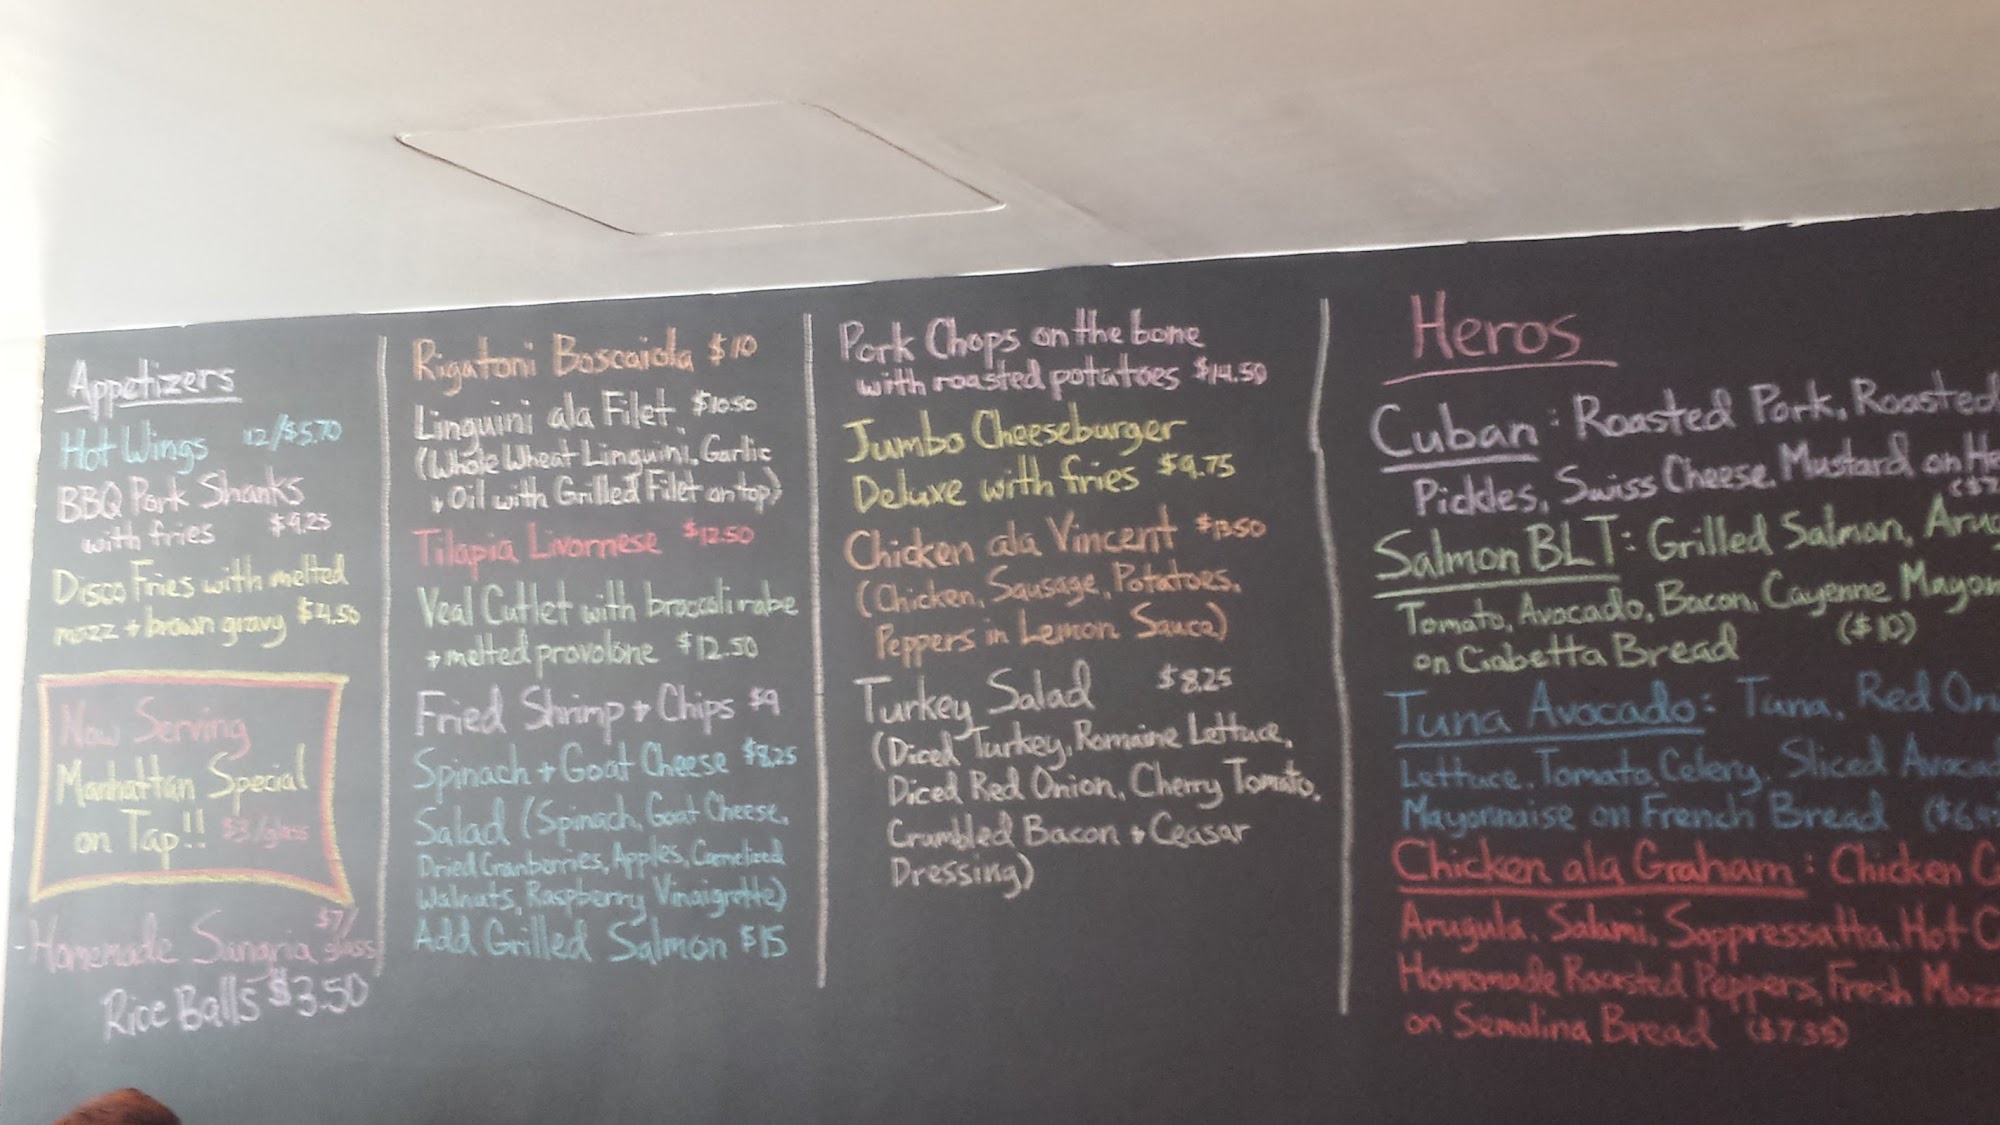 Appetizers
Hot Wings 12/$5.70
BBQ Pork Shanks
with fries $9.25
Disco Fries with melted
mozz + brown gravy $4.50
Now Serving
Manhattan Special
on Tap!! $3/glass
-Homemade Sangria $7/glass
Rice Balls $3.50
Rigatoni Boscaiola $10
Linguini ala Filet $10.50
(Whole Wheat Linguini, Garlic
+ Oil with Grilled Filet on top)
Tilapia Livornese $12.50
Veal Cutlet with broccoli rabe
+ melted provolone $12.50
Fried Shrimp + Chips $9
Spinach + Goat Cheese $8.25
Salad (Spinach, Goat Cheese,
Dried Cranberries, Apples, Carmelized
Walnuts, Raspberry Vinaigrette)
Add Grilled Salmon $15
Pork Chops on the bone
with roasted potatoes $14.50
Jumbo Cheeseburger
Deluxe with fries $9.75
Chicken ala Vincent $13.50
(Chicken, Sausage, Potatoes,
Peppers in Lemon Sauce)
Turkey Salad $8.25
(Diced Turkey, Romaine Lettuce,
Diced Red Onion, Cherry Tomato,
Crumbled Bacon + Ceasar
Dressing)
Heros
Cuban: Roasted Pork, Roasted
Pickles, Swiss Cheese, Mustard on
Salmon BLT: Grilled Salmon,
Tomato, Avocado, Bacon, Cayenne
on Ciabetta Bread ($10)
Tuna Avocado: Tuna, Red
Lettuce, Tomato, Celery, Sliced
Mayonnaise on French Bread
Chicken ala Graham: Chicken
Arugula, Salami, Soppressatta, Hot
Homemade Roasted Peppers, Fresh
on Semolina Bread ($7.35)